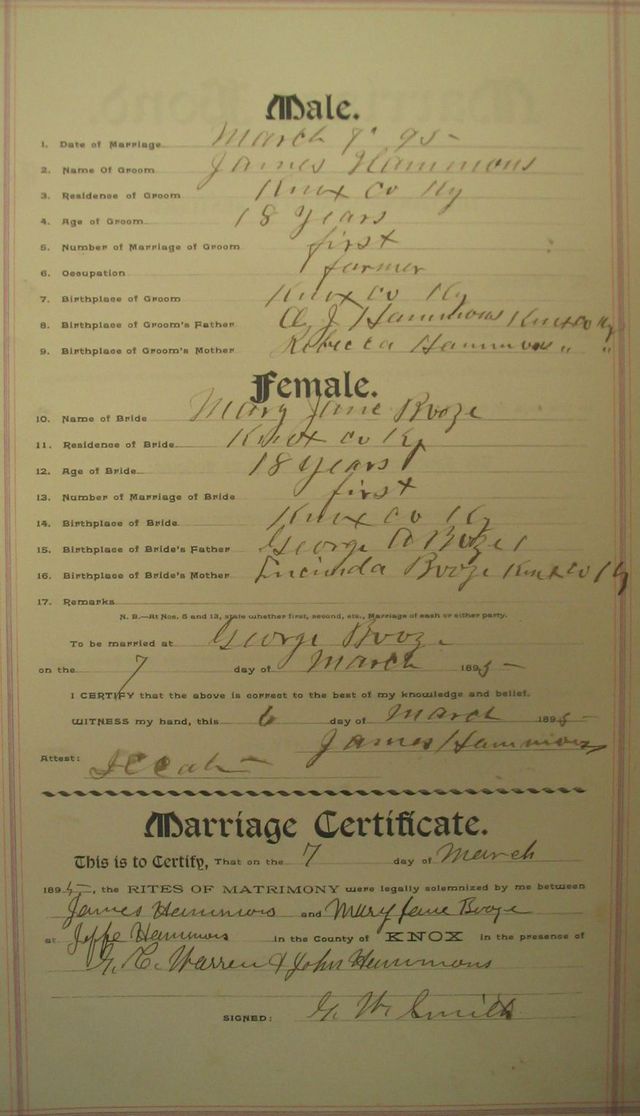 Male.
1. Date of Marriage March 7" 95
2. Name Of Groom James Hammons
3. Residence of Groom Knox Co Ky
4. Age of Groom 18 Years
5. Number of Marriage of Groom first
6. Occupation farmer
7. Birthplace of Groom Knox Co Ky
8. Birthplace of Groom's Father A J Hammons Knox Co Ky
9. Birthplace of Groom's Mother Rebecca Hammons " "
Female.
10. Name of Bride Mary Jane Booze
11. Residence of Bride Knox Co Ky
12. Age of Bride 18 Years
13. Number of Marriage of Bride first
14. Birthplace of Bride Knox Co Ky
15. Birthplace of Bride's Father George A Booze
16. Birthplace of Bride's Mother Lucinda Booze Knox Co Ky
17. Remarks
N. B.—At Nos. 5 and 13, state whether first, second, etc., Marriage of each or either party.
To be married at George Booze
on the 7 day of March 1895
I CERTIFY that the above is correct to the best of my knowledge and belief.
WITNESS my hand, this 6 day of March 1895
James Hammons
Attest:
Marriage Certificate.
This is to Certify, That on the 7 day of March
1895, the RITES OF MATRIMONY were legally solemnized by me between
James Hammons and Mary Jane Booze
at Jeffe Hammons in the County of KNOX in the presence of
G. C. Warren & John Hammons
SIGNED: G. W. Smith